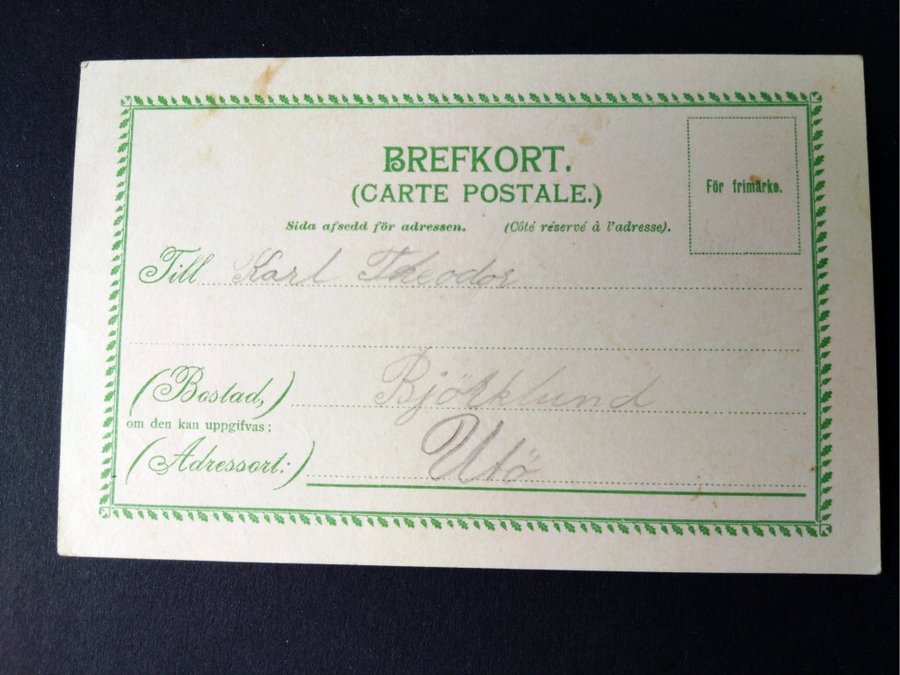 BREFKORT.
(CARTE POSTALE.)
För frimärke.
Sida afsedd för adressen. (Côté réservé à l'adresse).
Till Karl Theodor
(Bostad,) Björklund
om den kan uppgifvas:
(Adressort:) Utö